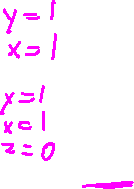 y=1
x=1
y=1
x=1
z=0